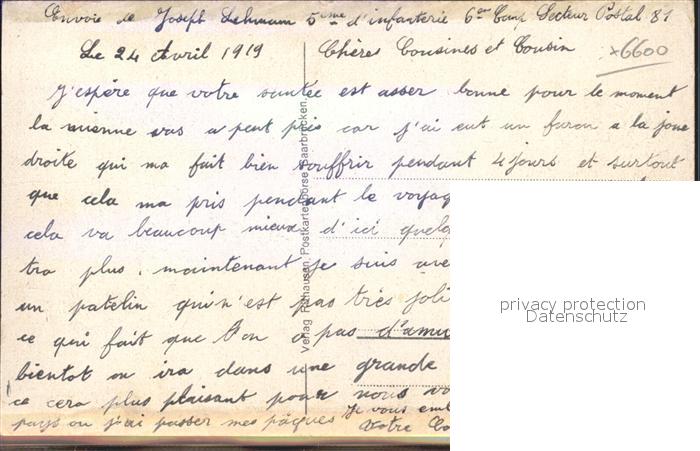 Envoie de Joseph Lehmann 5ième d'infanterie 6ème Comp Secteur Postal 81
Le 24 Avril 1919 Chères Cousines et Cousin
x6600
J'espère que votre santée est asser bonne pour le moment
la mienne vas a peut près car j'ai eut un furon a la joue
droite qui ma fait bien souffrir pendant 4 jours et surtout
que cela ma pris pendant le voyag
cela va beaucoup mieux d'ici quelq
tra plus, maintenant je suis ave
un patelin qui n'est pas très joli
ce qui fait que l'on a pas d'amu
bientot on ira dans une grande
ce cera plus plaisant pour nous vo
pays ou j'ai passer mes pâques Je vous emb
Votre Co
Verlag Rithausen, Postkartenbörse Saarbrücken.
privacy protection
Datenschutz